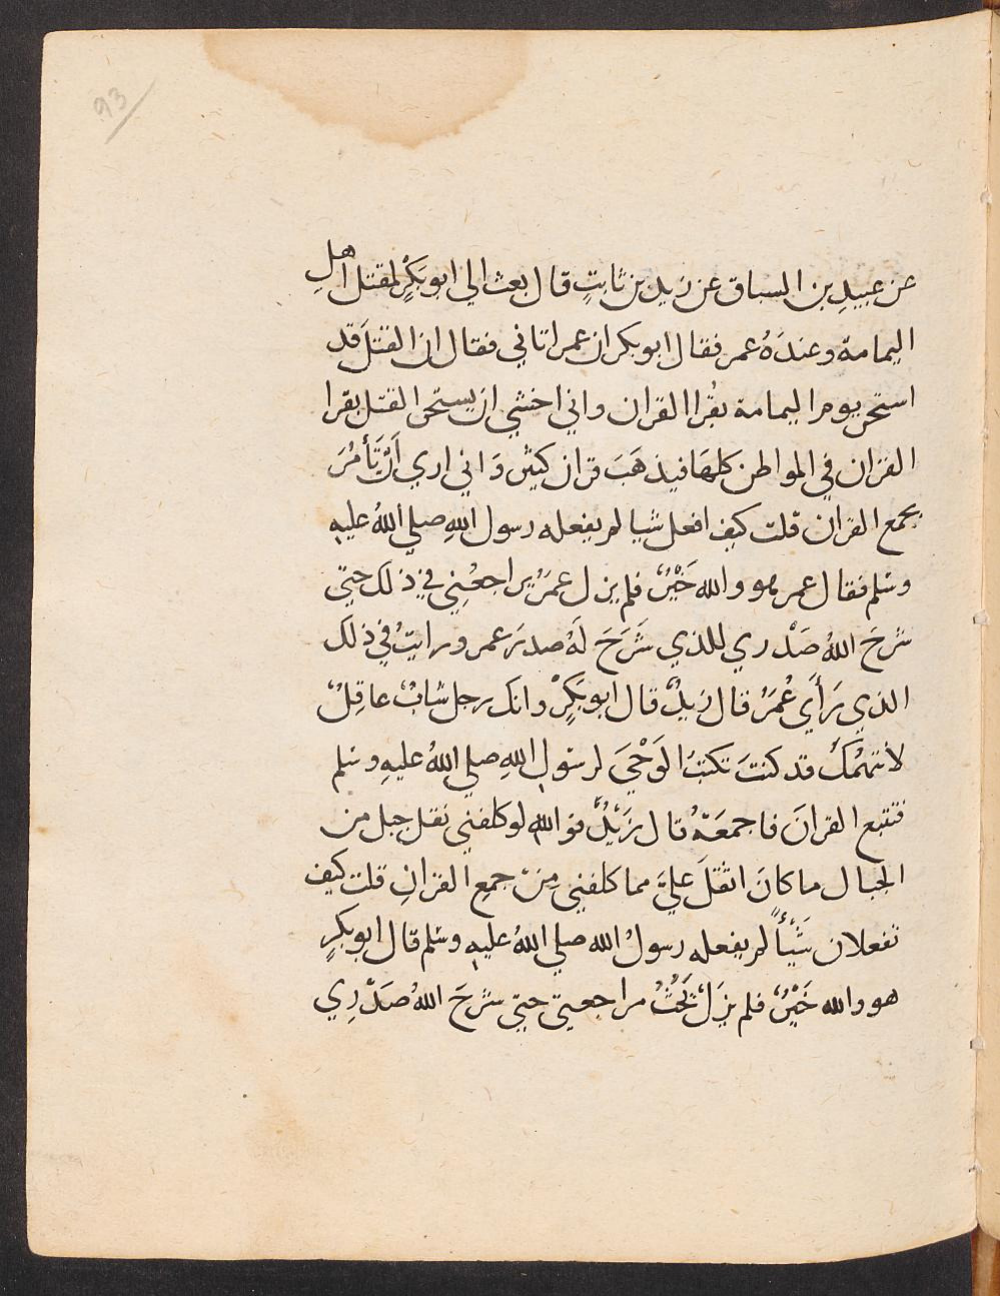 93
عن عبيدِ بن السباق عن زيد بن ثابتٍ قال بعث الي ابو بَكْرٍ لمقتل اهلِ
اليمامة وعندَهُ عمر فقال ابو بكر ان عمر اتاني فقال ان القتلَ قد
استحر يوم اليمامة بقُراا القران واني اخشي ان يستحر القتل بقرا
القران في المواطن كلهَا فيذهَبَ قران كثير وَاني اري اَنْ تَأْمُرَ
بجمع القران قلت كيف افعل شيا لم يفعله رسول اللهِ صلي اللهُ عليهِ
وسَلم فقال عمر هو والله خَيْرٌ فلم يزل عمَرُ يراجعُني في ذلك حتي
شرحَ اللهُ صَدْري للذي شَرَحَ لَهُ صدرَ عمر ورايتُ في ذلك
الذي رَأَي عُمَرُ قال زيدٌ قال ابو بَكرٍ وانك رجل شابٌ عاقِلٌ
لا نتهمُكَ قد كنتَ تكتبُ الوَحْيَ لرسُولِ اللهِ صلي اللهُ عليهِ وسَلم
فتتبع القرانَ فاجمعَهُ قال زَيْدٌ فو اللهِ لو كلفني نقل جبل من
الجبال ما كانَ اثقلَ عليَّ مما كلفني مِنْ جمعِ القرانِ قلت كيف
تفعلان شَيْأً لم يفعله رسولُ الله صلي اللهُ عليهِ وسَلم قال ابو بكرٍ
هو والله خَيْرٌ فلم يزَلْ مراجعتي حتي شرحَ اللهُ صَدْرِي